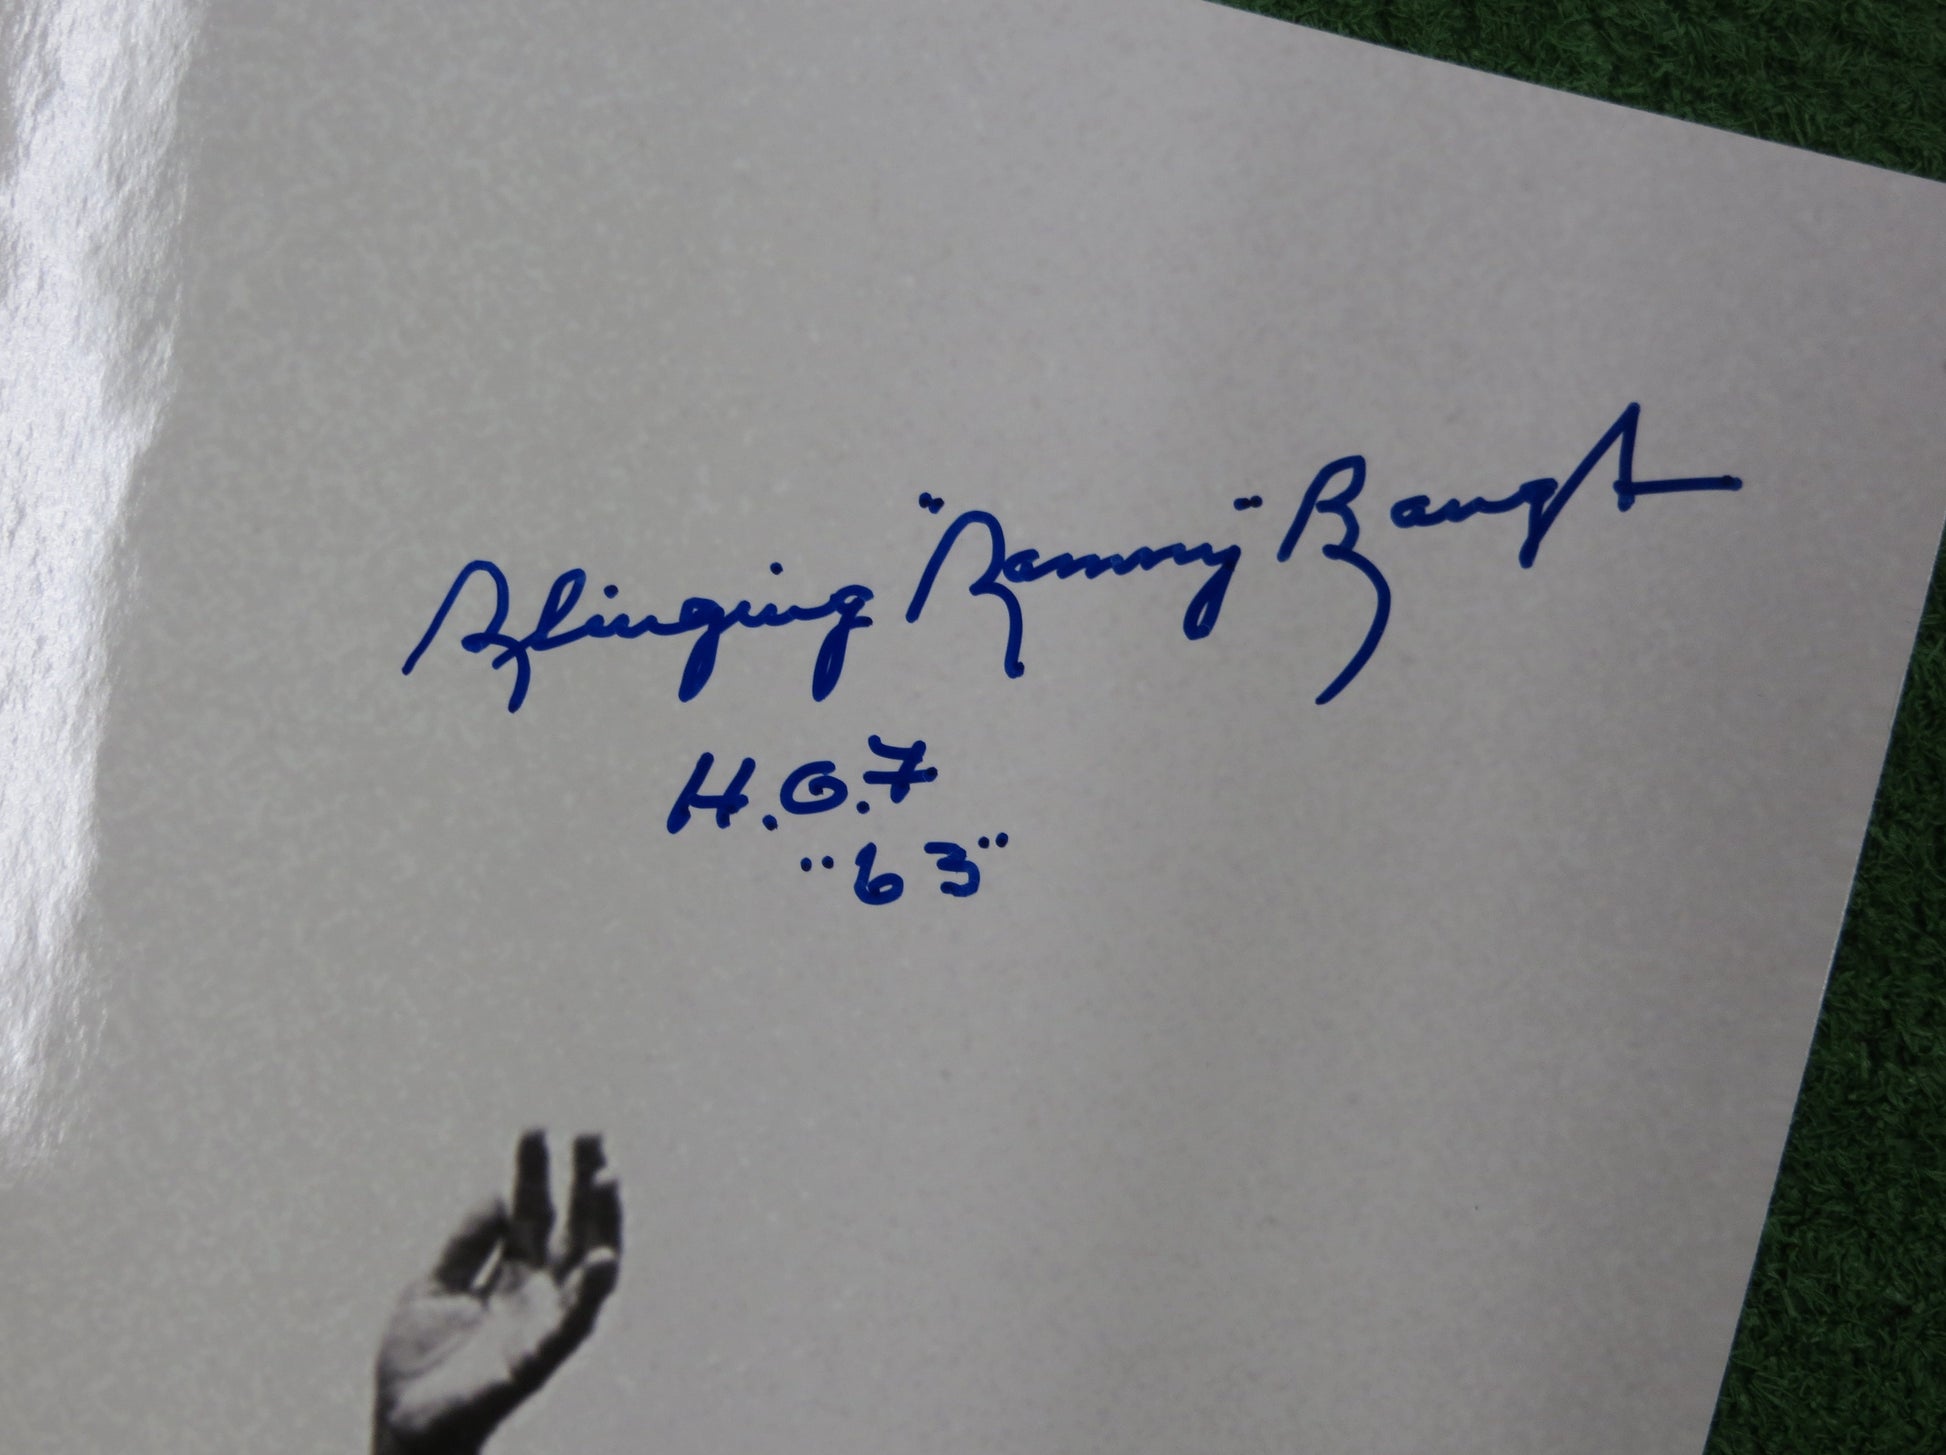 Slinging "Sammy" Baugh
H.O.F
"63"